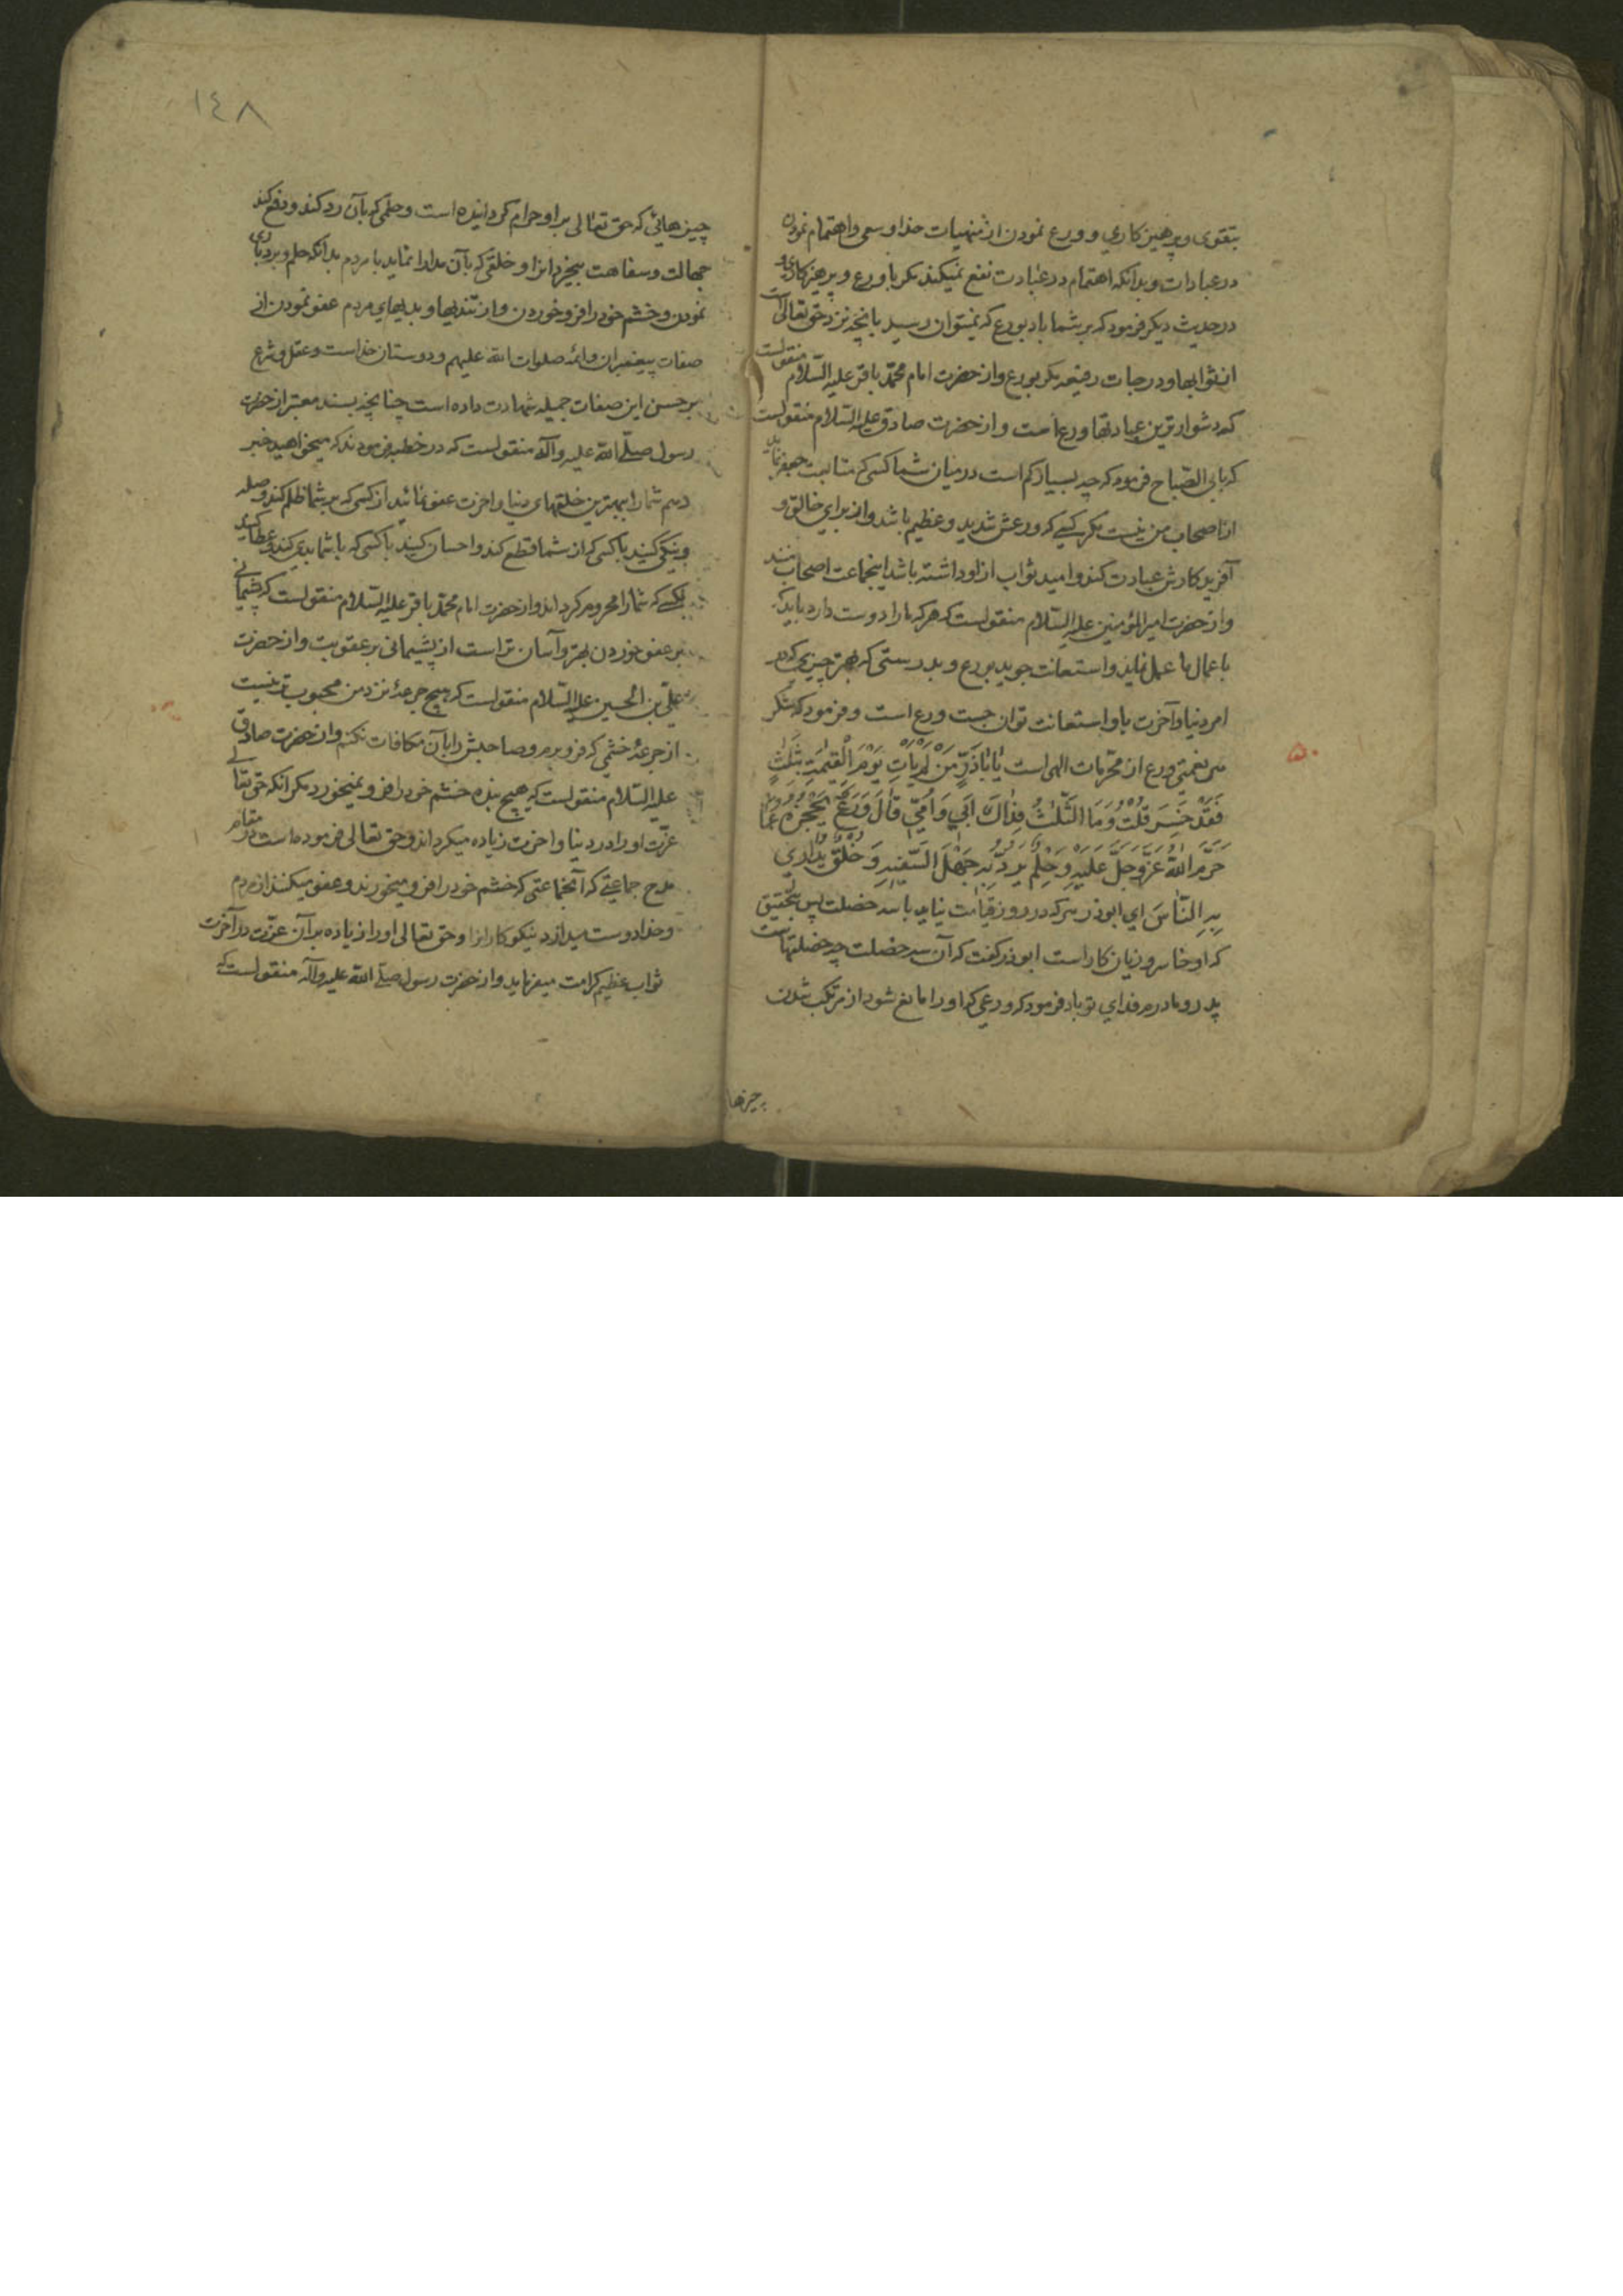 بتقوی وپرهیزکاري و ورع نمودن از منهیات خدا و سعی واهتمام نمودن
در عبادات وبدانکه اهتمام در عبادت نفع نمیکند مکر با ورع و پرهیزکاری و
در حدیث دیکر فرمود که بر شما باد بورع که نمیتوان رسید بانچه نزد حق تعالی است
از ثوابها و درجات رفیعه مکر بورع واز حضرت امام محمد باقر علیه السّلام منقولست
که دشوار ترین عبادتها ورع است و از حضرت صادق علیه السّلام منقولست
که بابی الصّباح فرمود که چه بسیار کم است در میان شما کسی که متابعت جعفر نماید
از اصحاب من نیست مکر کسے که ورعش شدید و عظیم باشد واز برای خالق و
آفریدکارش عبادت کند وامید ثواب از او داشته باشد اینجماعت اصحاب منند
واز حضرت امیرالمؤمنین علیه السّلام منقولست که هر که مارا دوست دارد باید که
باعمال ما عمل نماید واستعانت جوید بورع و بدرستی که بهتر چیزی که در
امر دنیا وآخرت باو استعانت توان جست ورع است و فرمود که شکر
هر نعمتی ورع از محرّمات الهی است یا اباذَرٍّ مَنْ لَمْ یَأتِ یَوْمَ الْقِیٰمَةِ بِثَلٰثٍ
فَقَدْ خَسِرَ قُلْتُ وَمَا الثَّلٰثُ فِدٰاكَ اَبي وَاُمّي قٰالَ وَرَعٌ یَحْجُزُهُ عَمّا
حَرَّمَ اللّٰهُ عَزَّوَجَلَّ عَلَیْهِ وَحِلْمٌ یَرُدُّ بِهِ جَهْلَ السَّفیهِ وَخُلْقٌ یُداري
بِهِ النّاسَ اي ابوذر هر که در روز قیامت نیاید با سه خصلت پس بتحقیق
که او خاسر و زیان کار است ابوذر کفت که آن سه خصلت چه خصلتهاست
پدر و مادرم فداي تو باد فرمود که ورعی که او را مانع شود از مرتکب شدن
چیزها
١٤٨
چیزهائي که حق تعالی بر او حرام کردانیده است و حلمی که بآن رد کند و دفع کند
جهالت و سفاهت بیخردانرا و خلقی که بآن مدارا نماید با مردم بدانکه حلم و بردباری
نمودن و خشم خود را فرو خوردن و از تندیها و بدیهاي مردم عفو نمودن از
صفات پیغمبران وائمه صلوات الله علیهم و دوستان خداست و عقل و شرع
بر حسن این صفات جمیله شهادت داده است چنانچه بسند معتبر از حضرت
رسول صلّے الله علیه وآله منقولست که در خطبه فرمودند که میخواهید خبر
دهم شمارا ببهترین خلقهای دنیا و اخرت عفو نمائید از کسی که بر شما ظلم کند و صله
ونیکی کنید با کسی که از شما قطع کند واحسان کنید با کسی که با شما بدی کند و عطا کنید
بکسے که شمارا محروم کرداند واز حضرت امام محمّد باقر علیه السّلام منقولست که پشیمانے
بر عفو نمودن بهتر وآسان تر است از پشیمانی بر عقوبت واز حضرت
علیّ بن الحسین علیه السّلام منقولست که هیچ جرعۀ نزد من محبوب تر نیست
از جرعۀ خشمی که فرو برم و صاحبش را بآن مکافات نکنم واز حضرت صادق
علیه السّلام منقولست که هیچ بنده خشم خود را فرو نمیخورد مکر انکه حق تعالے
عزّت او را در دنیا و اخرت زیاده میکرداند و حق تعالی فرموده است در مقام
مدح جماعتے که آنجماعتی که خشم خود را فرو میخورند و عفو میکنند از مردم
وخدا دوست میدارد نیکوکارانرا وحق تعالی او را زیاده بر آن عزّت در آخرت
ثواب عظیم کرامت میفرماید واز حضرت رسول صلّے الله علیه وآله منقولست که